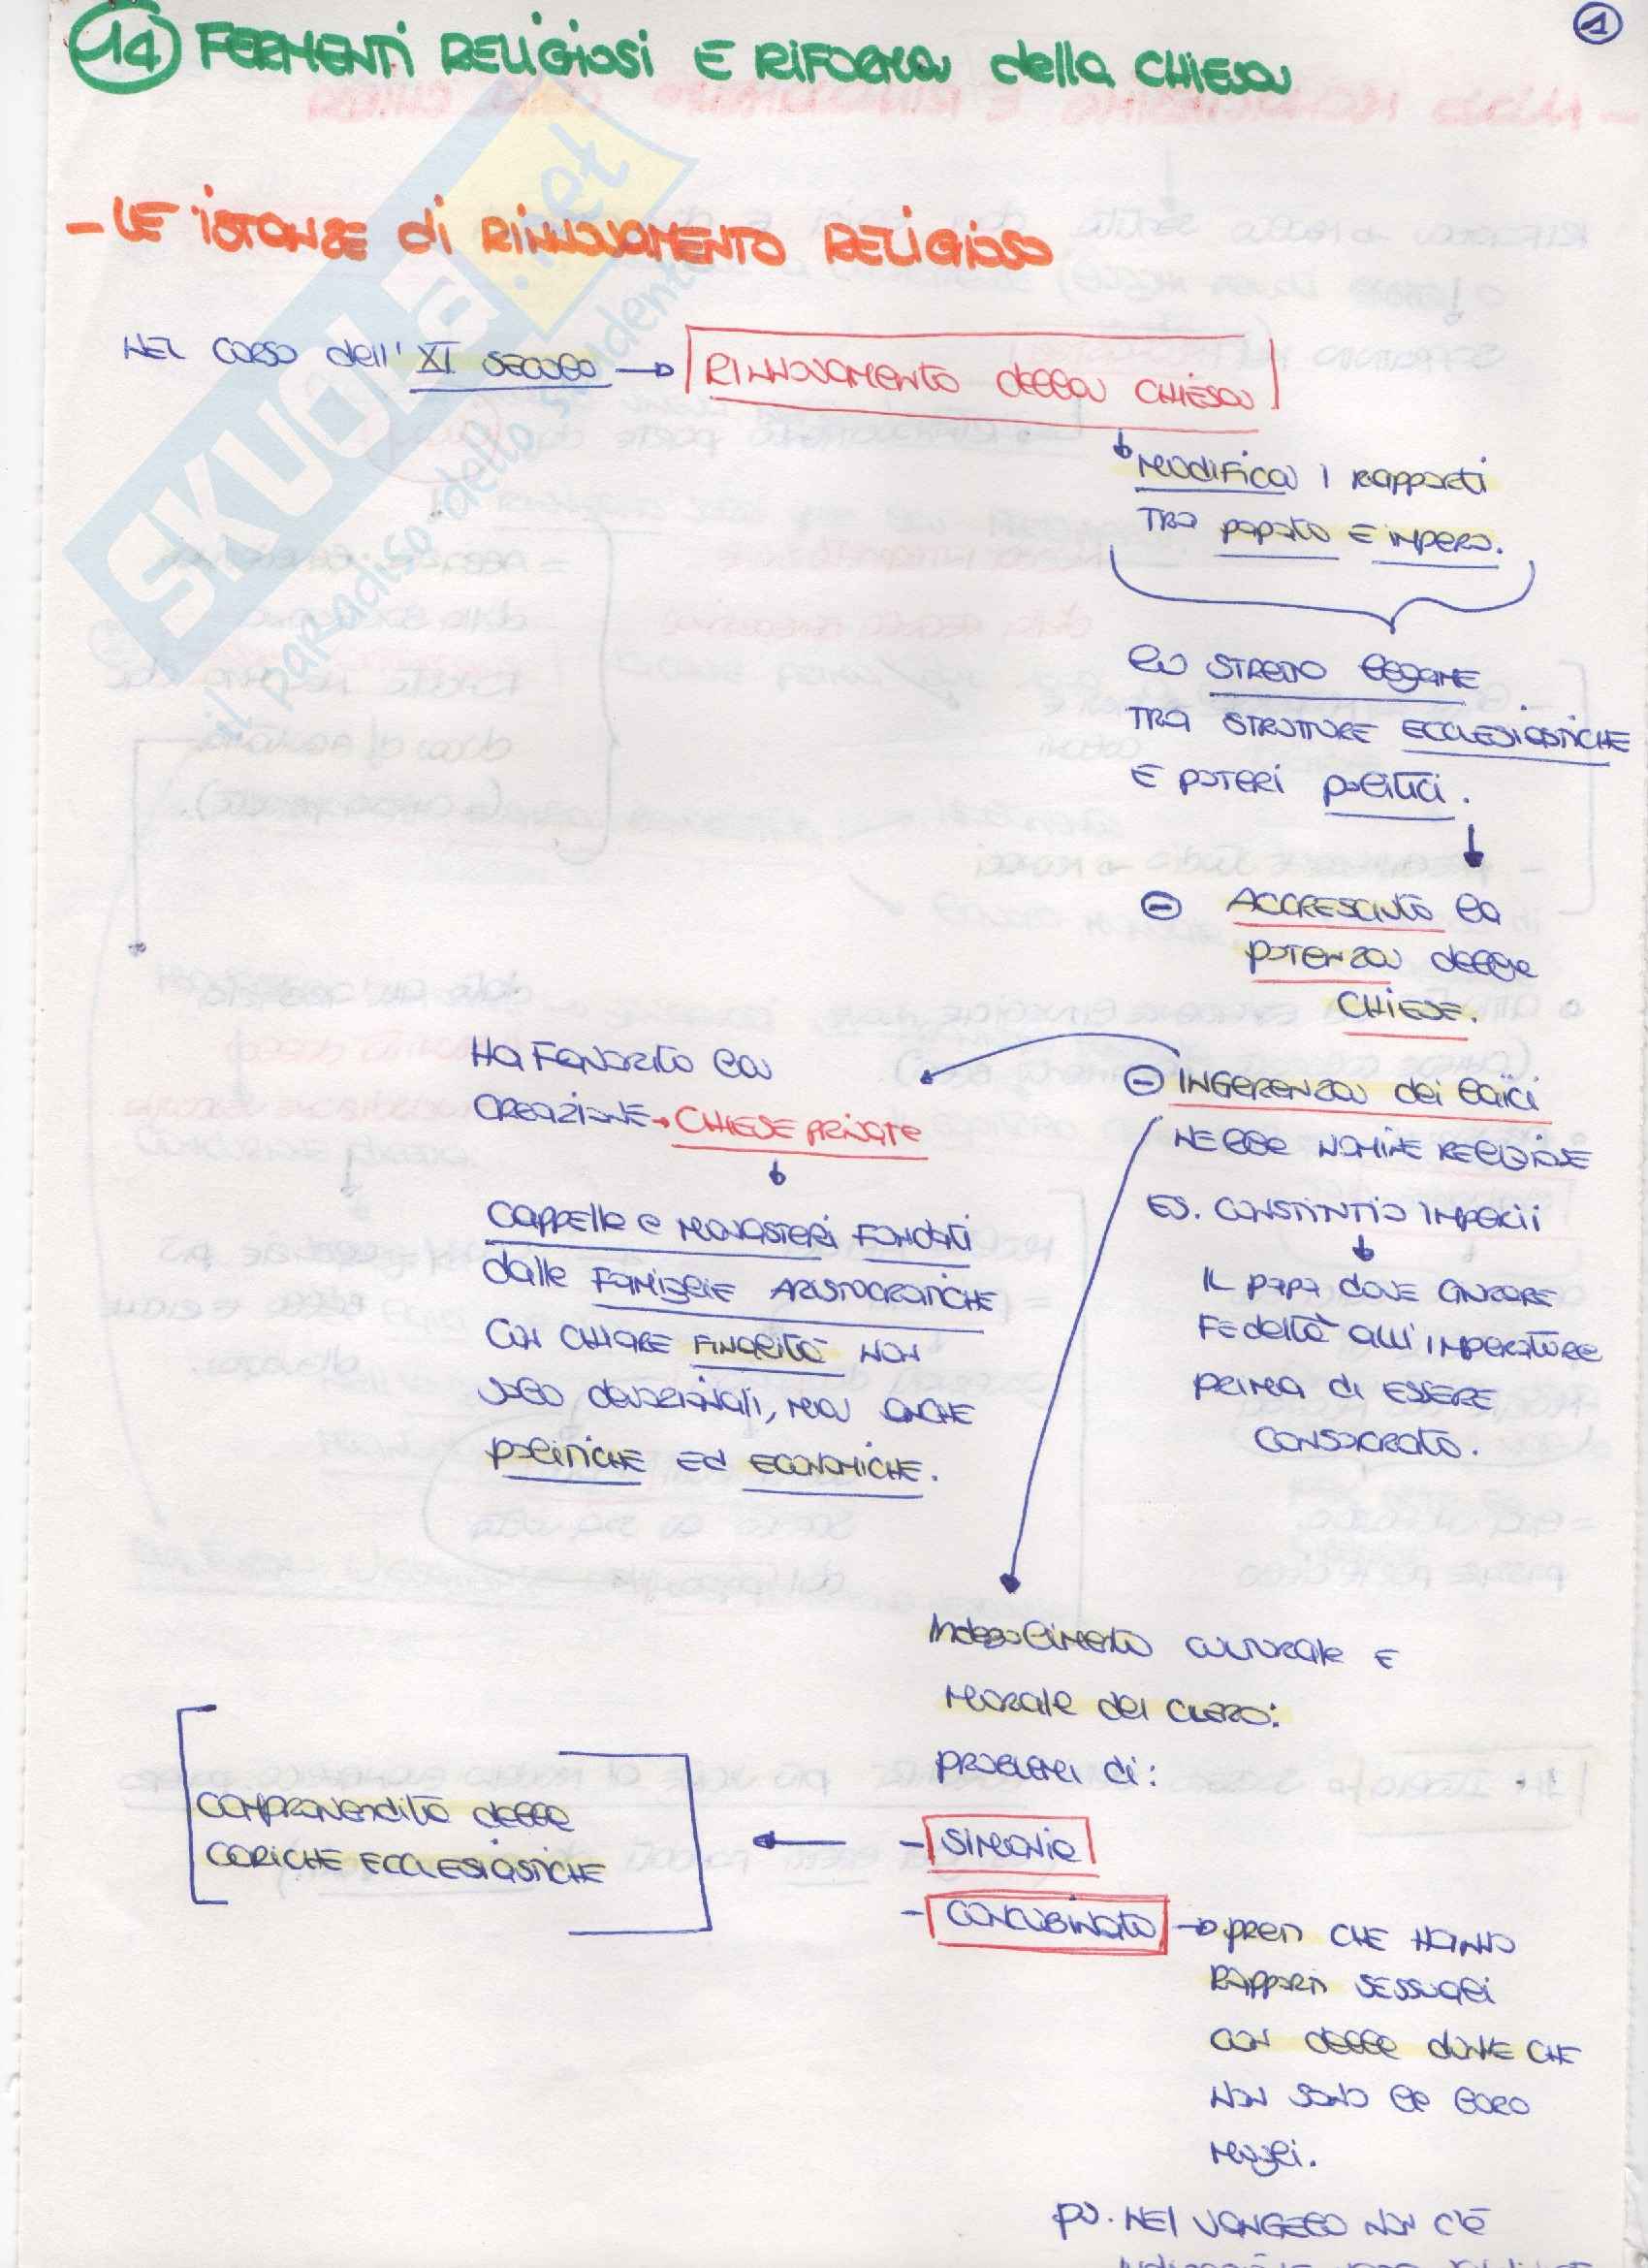 1
14 FERMENTI RELIGIOSI E RIFORMA della CHIESA
- LE ISTANZE di RINNOVAMENTO RELIGIOSO
NEL CORSO dell' XI SECOLO → RINNOVAMENTO DELLA CHIESA
MODIFICA I RAPPORTI
TRA PAPATO E IMPERO.
LO STRETTO LEGAME
TRA STRUTTURE ECCLESIASTICHE
E POTERI POLITICI.
- ACCRESCIUTO LA
POTENZA DELLE
CHIESE.
- INGERENZA dei LAICI
NELLE NOMINE RELIGIOSE
ES. CONSTITUTIO IMPERII
IL PAPA DOVE GIURARE
FEDELTÀ ALL'IMPERATORE
PRIMA DI ESSERE
CONSACRATO.
HA FAVORITO LA
CREAZIONE → CHIESE PRIVATE
CAPPELLE E MONASTERI FONDATI
dalle FAMIGLIE ARISTOCRATICHE
CON CHIARE FINALITÀ NON
SOLO DEVOZIONALI, MA ANCHE
POLITICHE ED ECONOMICHE.
INDEBOLIMENTO CULTURALE E
MORALE DEL CLERO:
PROBLEMI di:
- SIMONIA
COMPRAVENDITA DELLE
CARICHE ECCLESIASTICHE
- CONCUBINATO → PRETI CHE HANNO
RAPPORTI SESSUALI
CON DELLE DONNE CHE
NON SONO LE LORO
MOGLI.
NEL VANGELO NON C'È
SKUOLA.net
il paradiso dello studente